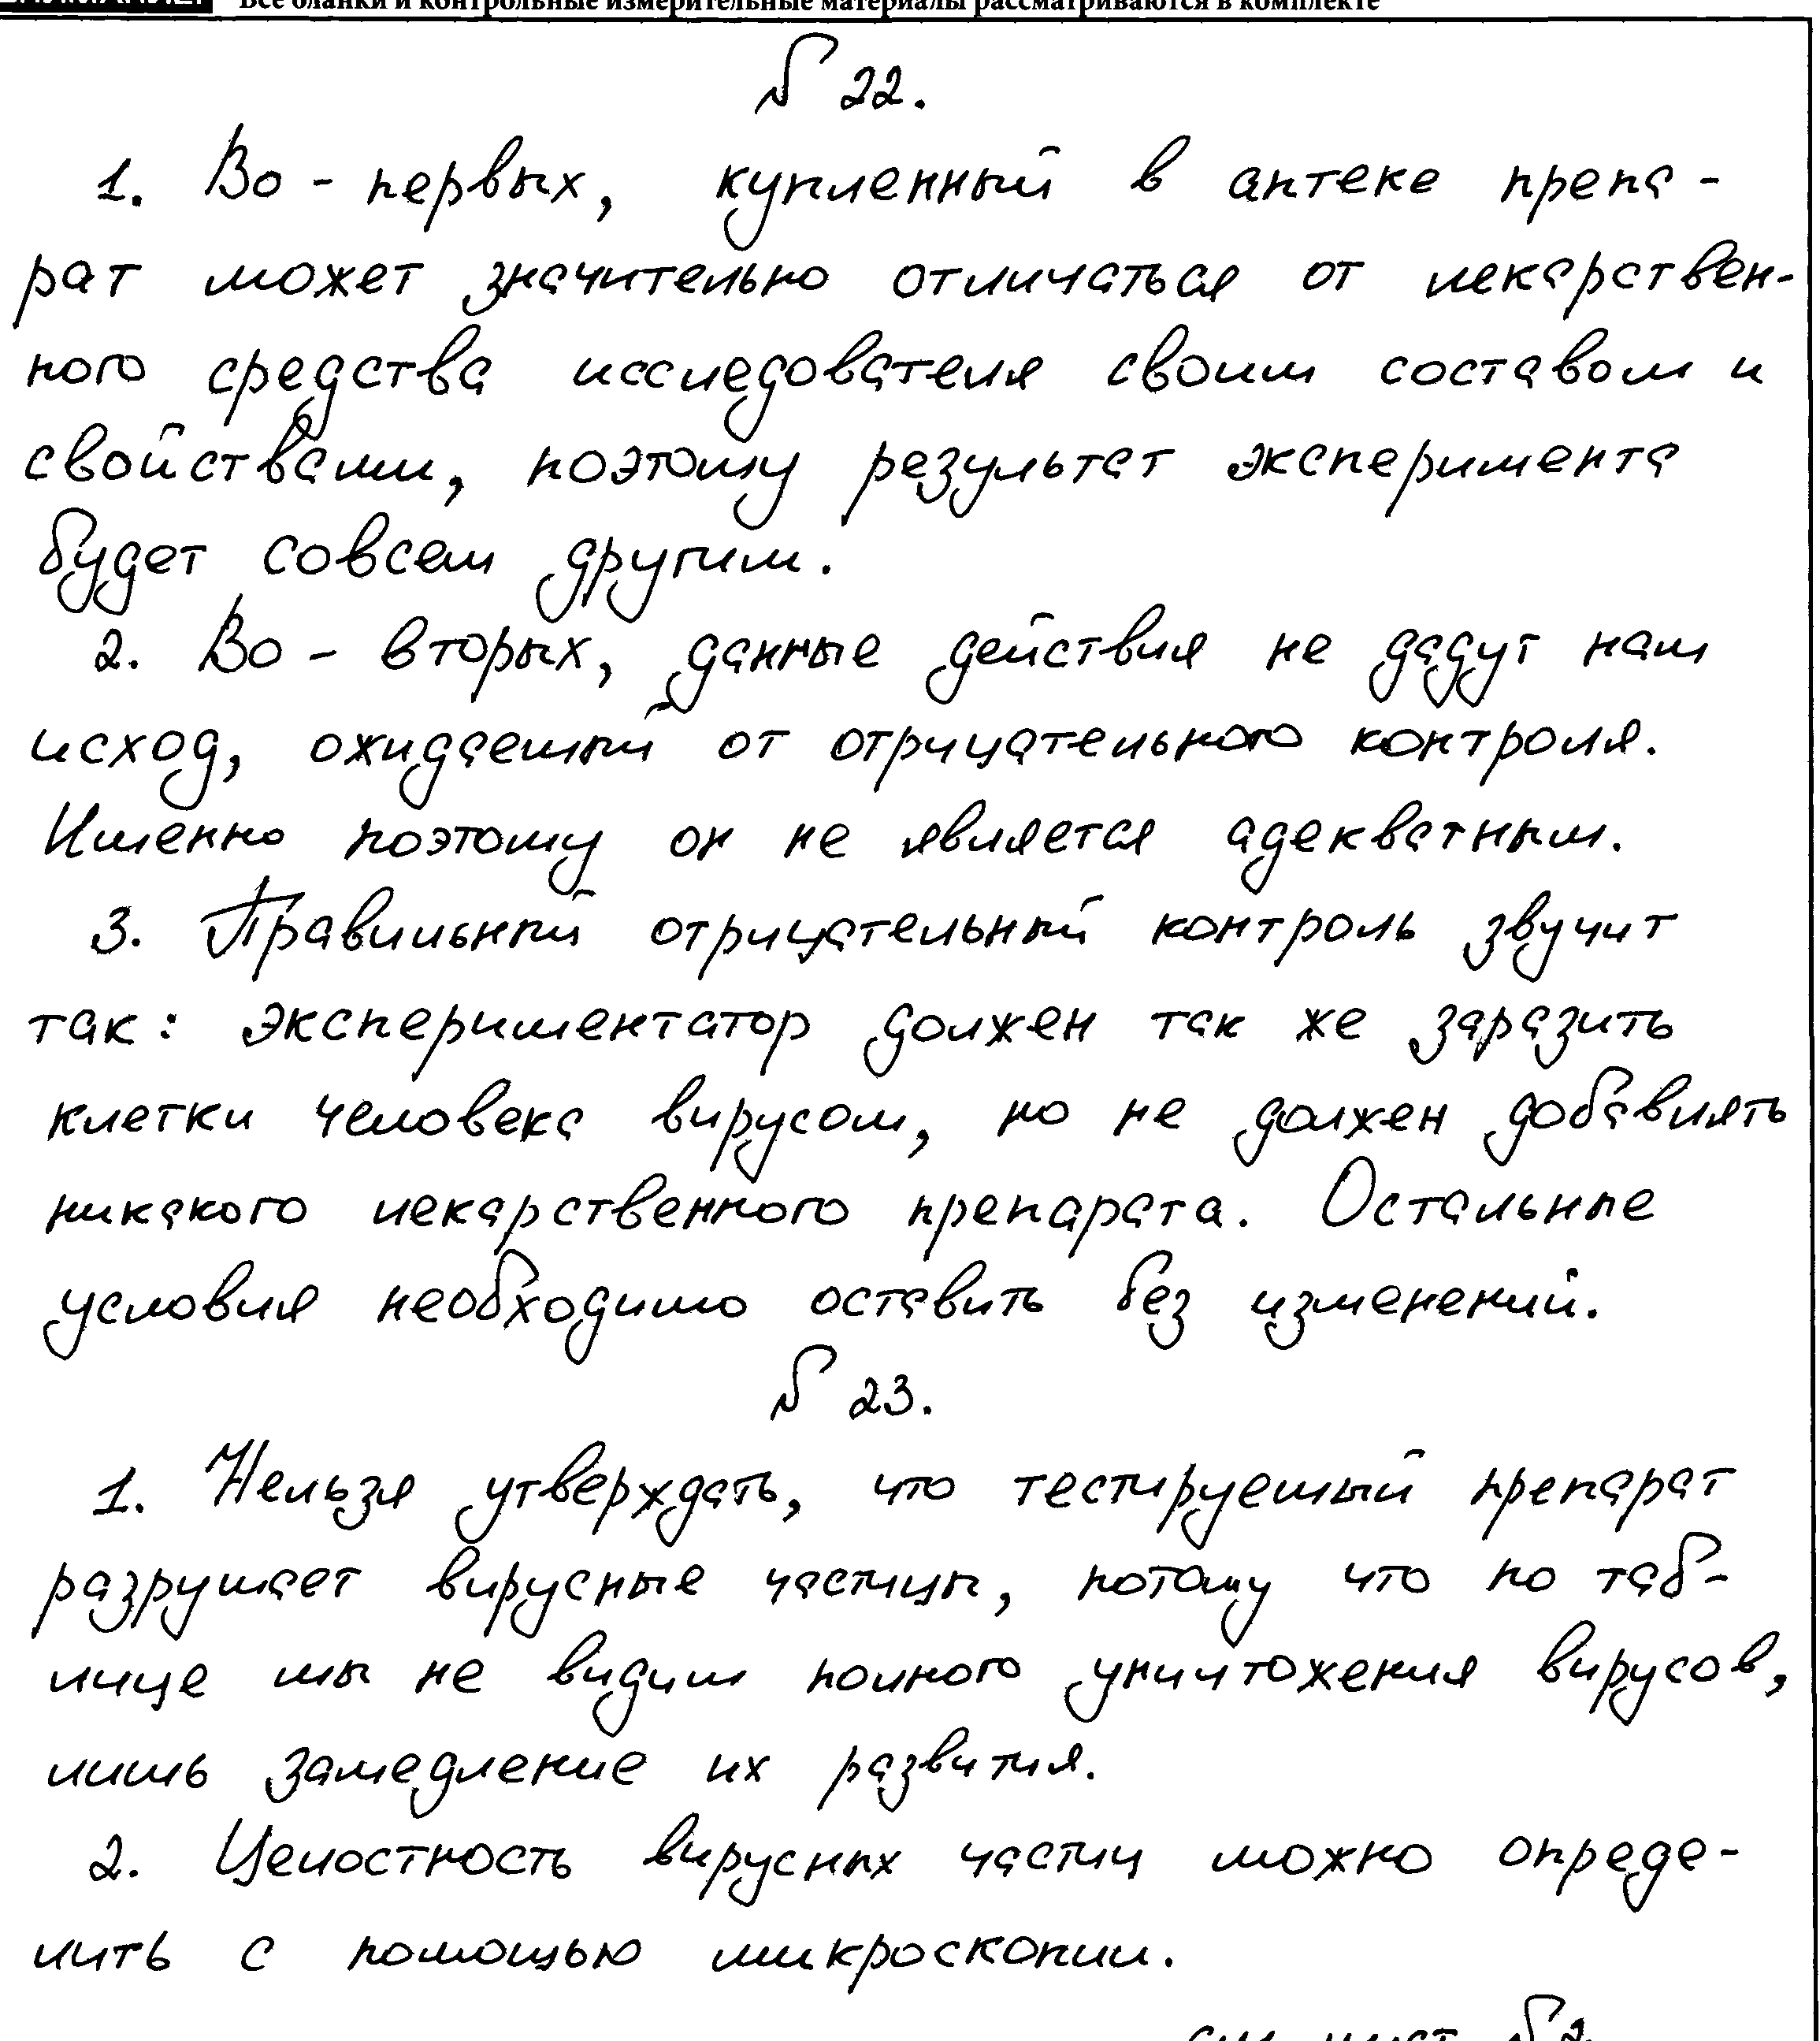 Все бланки и контрольные измерительные материалы рассматриваются в комплекте
№ 22.
1. Во - первых, купленный в аптеке препа -
рат может значительно отличаться от лекарствен-
ного средства исследователя своим составом и
свойствами, поэтому результат эксперимента
будет совсем другим.
2. Во - вторых, данные действия не дадут нам
исход, ожидаемый от отрицательного контроля.
Именно поэтому он не является адекватным.
3. Правильный отрицательный контроль звучит
так: экспериментатор должен так же заразить
клетки человека вирусом, но не должен добавлять
никакого лекарственного препарата. Остальные
условия необходимо оставить без изменений.
№ 23.
1. Нельзя утверждать, что тестируемый препарат
разрушает вирусные частицы, потому что по таб-
лице мы не видим полного уничтожения вирусов,
лишь замедление их развития.
2. Целостность вирусных частиц можно опреде-
лить с помощью микроскопии.